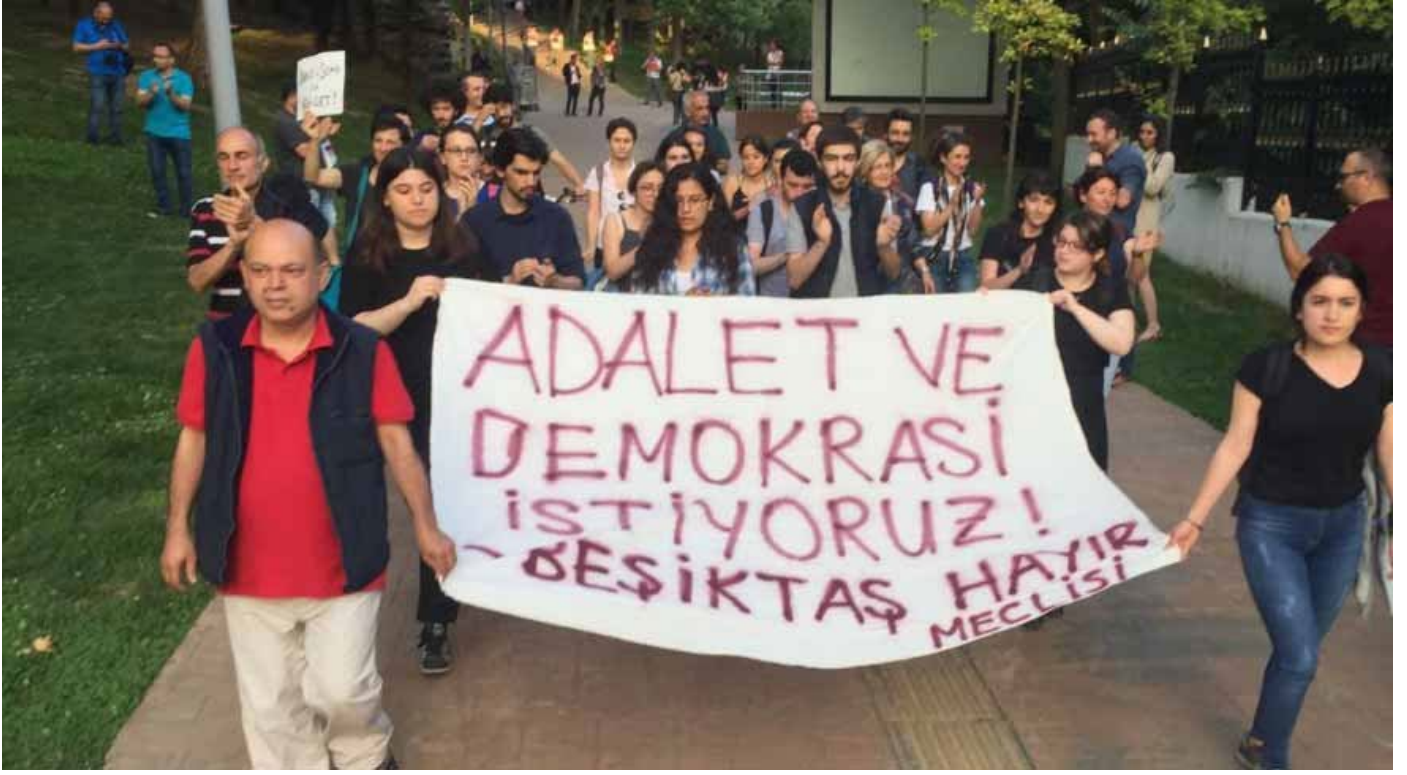 ADALET VE
DEMOKRASİ
İSTİYORUZ!
- BEŞİKTAŞ HAYIR
MECLİSİ